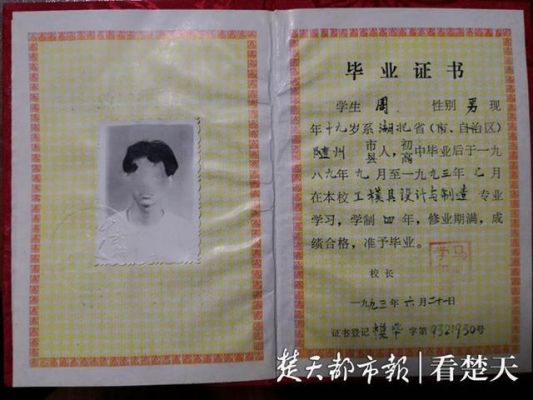 毕业证书
学生 周 性别 男 现
年十九岁系 湖北 省(市、自治区)
随州 市县人,初高中毕业后于一九
八九年九月至一九九三年七月
在本校 工模具设计与制造 专业
学习,学制 四 年,修业期满,成
绩合格,准予毕业。
校长
一九九三年六月二十一日
证书登记 模毕 字第 9321930 号
楚天都市報|看楚天